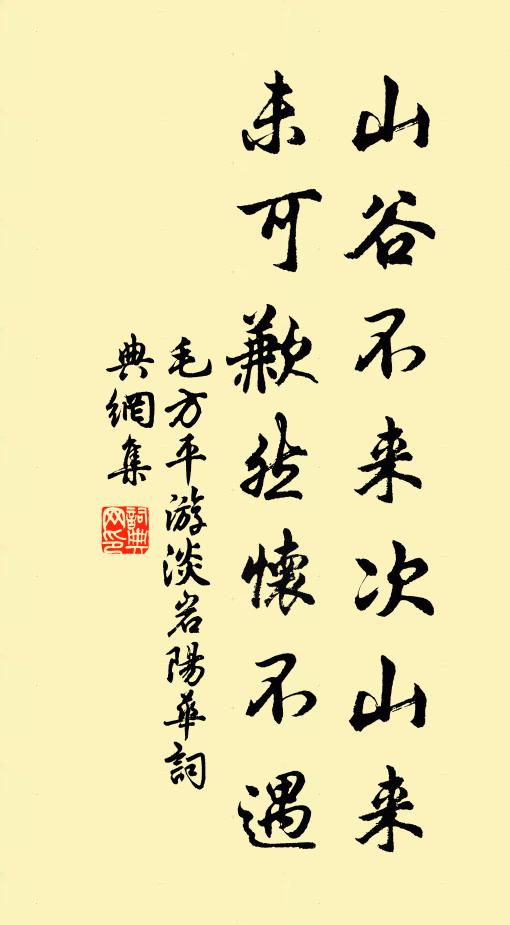 山谷不来次山来
未可歉然懷不遇
毛方平游淡岩陽華詞
典網集
詞典网印